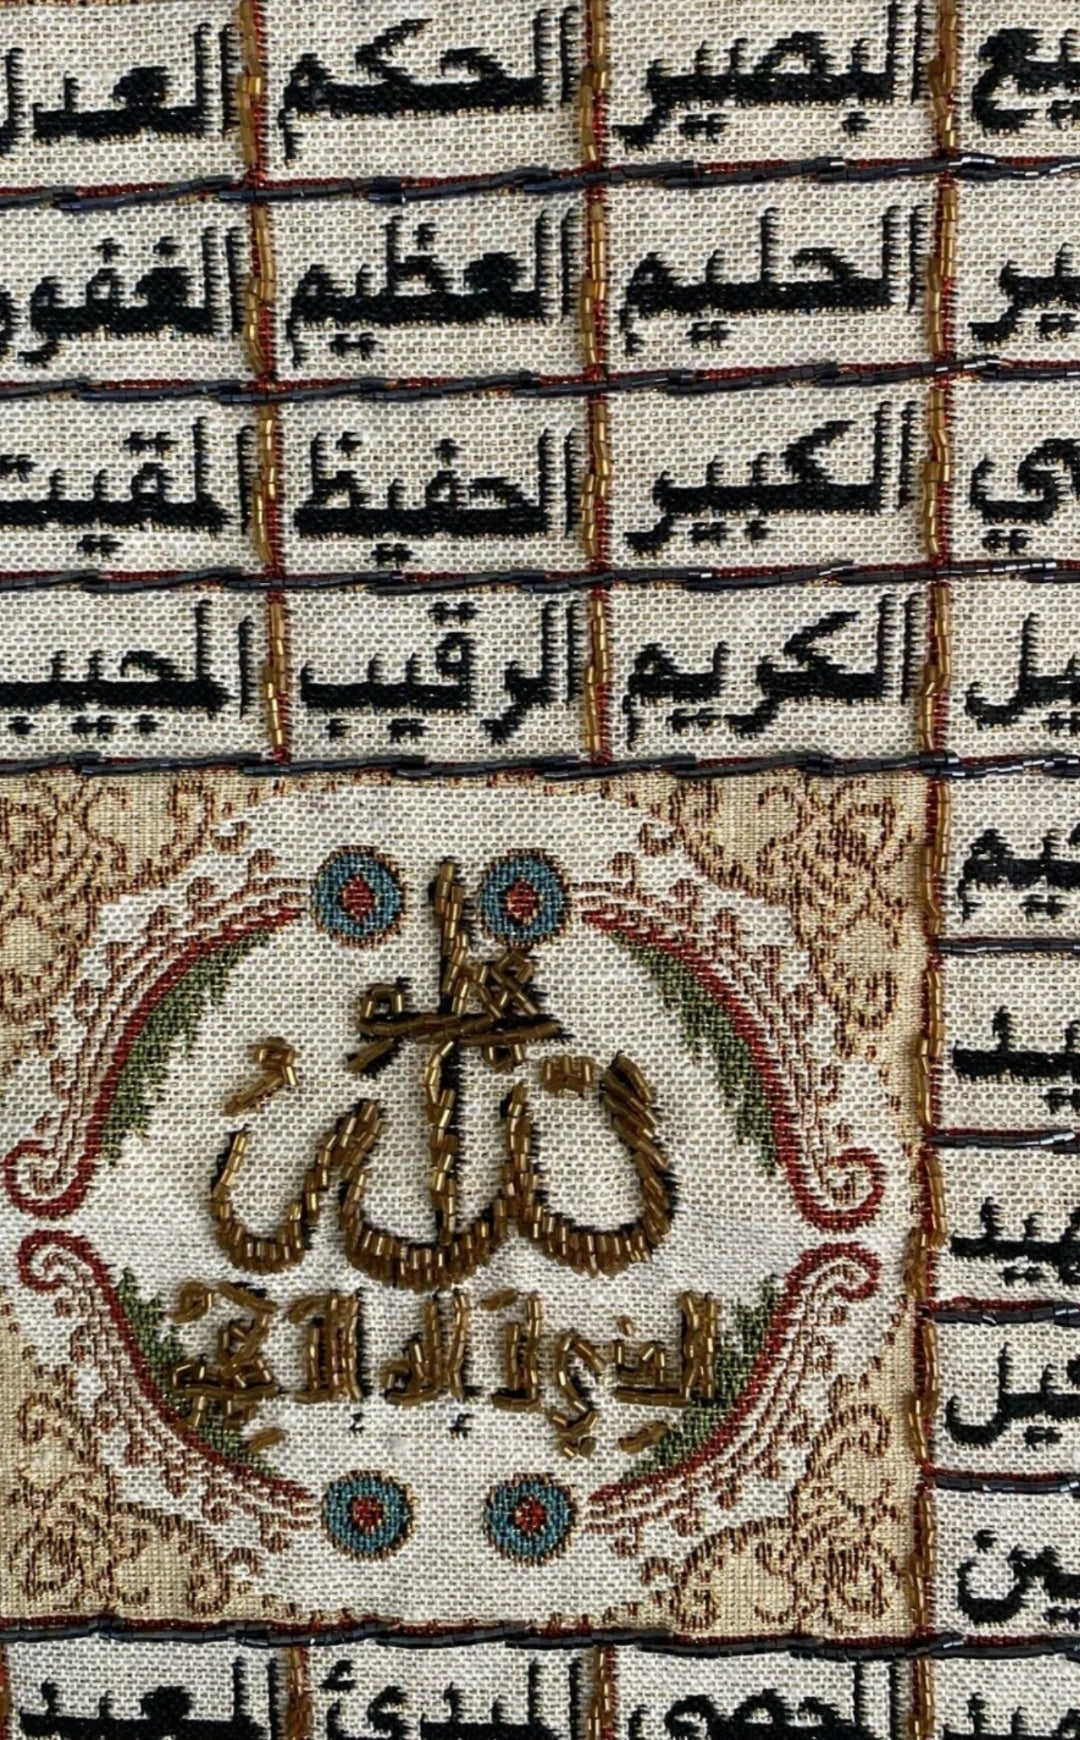 البصير الحكم العدل
الحليم العظيم الغفور
الكبير الحفيظ المقيت
الكريم الرقيب المجيب
الله
الذي لا اله الا هو
المحصي المبدئ المعيد